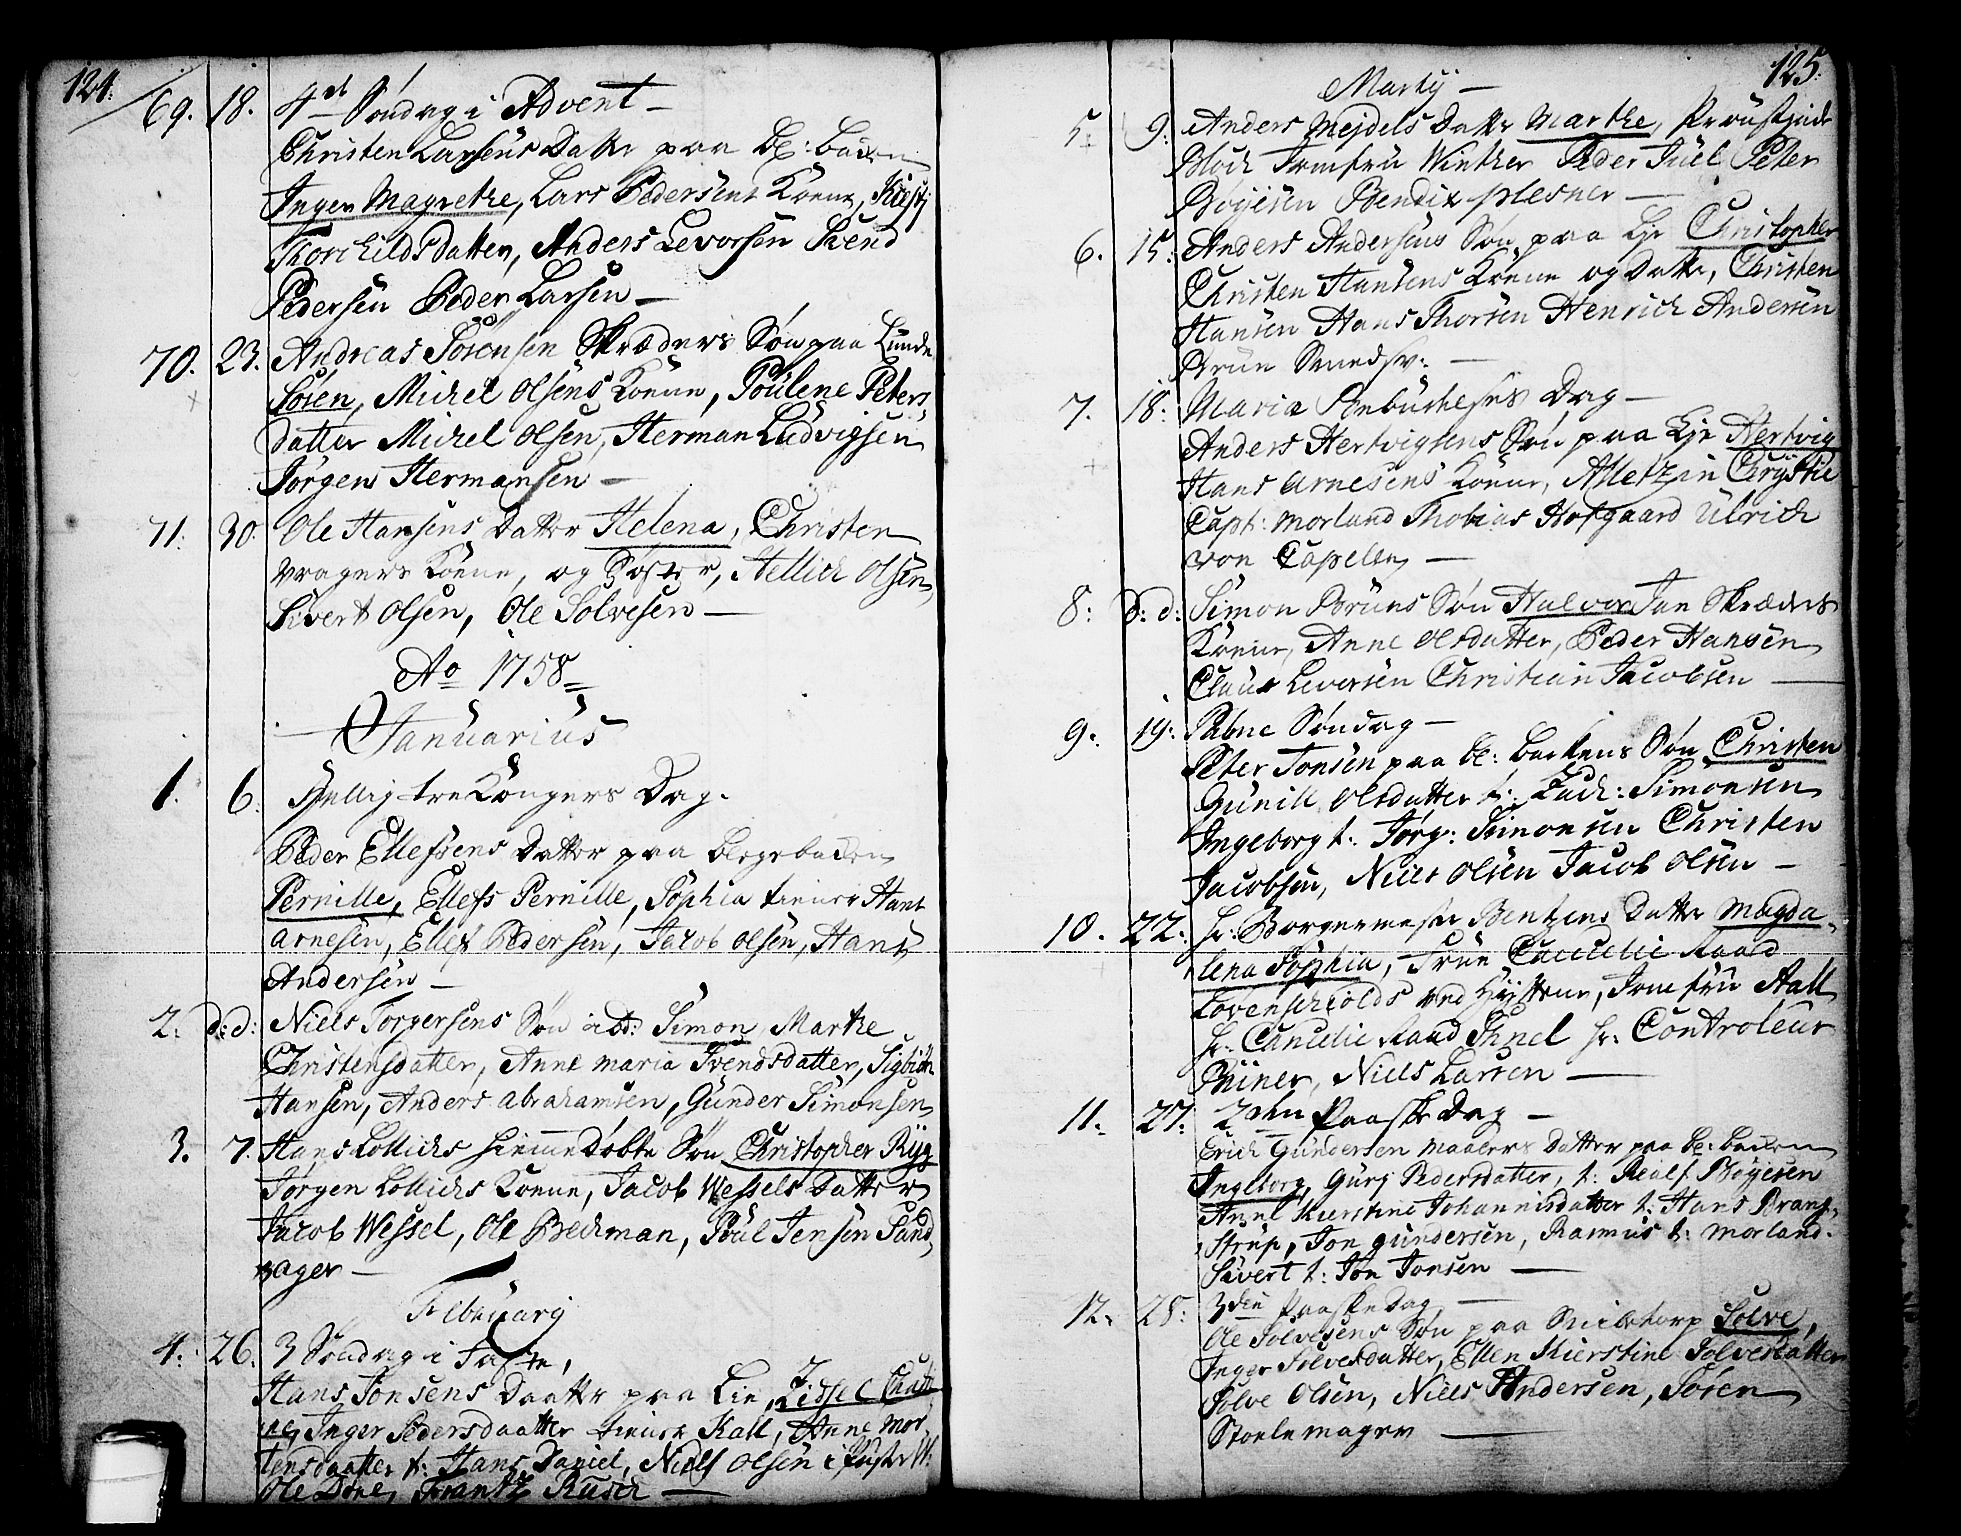 124.
69. 18. 4de Søndag i Advent
Christen Larsens Datter paa Bl: backen
Inger Magrethe, Lars Pedersens Koene, Kiesti
Thorchildsdatter, Anders Levorsen Svend
Pedersen Peder Larsen
70. 23. Andreas Sørensen Skræders Søn paa Lunde
Søren, Michel Olsens Koene, Poulene Peters
datter Michel Olsen, Herman Ludvigsen
Jørgen Hermansen
71. 30. Ole Hansens Datter Helena, Christen
Vragers Koene, og Søster, Hellich Olsen
Sivert Olsen, Ole Solvesen
Ao 1758
Januarius
1. 6. Hellig tre Kongers Dag.
Peder Ellefsens Datter paa Bergebacken
Pernille, Ellefs Pernille, Sophia tiener Hans
Arnesen, Ellef Pedersen, Jacob Olsen, Hans
Andersen
2. d: d: Niels Torgersens Søn ibd: Simon, Marthe
Christensdatter, Anne Maria Svendsdatter, Sigbiørn
Hansen, Anders Abrahamsen, Gunder Simonsen
3. 7. Hans Lollichs hiemmedøbte Søn Christopher Ryg
Jørgen Lollichs Koene, Jacob Wessels Datter
Jacob Wessel, Ole Beckman, Poul Jensen Sand
ager
February
4. 26. 3 Søndag i Faste,
Hans Jonsens Daatter paa Lie, Zidsel Chasti
ne, Inger Pedersdaatter tiener Kall, Anne Mor
tensdaatter t: Hans Daniel, Niels Olsen i
Ole Døvel, Frantz Rusch
125.
Martij
5. 9. Anders Mejdels Datter Marthe, Provstinde
Bloch Jomfru Winther Peder Juel Peter
Bøyesen Bendix Plesner
6. 15. Anders Andersens Søn paa Lie Christopher
Christen Hansens Koene og Datter, Christen
Hansen Hans Thorsen Henrich Andersen
Brun Smedsv:
7. 18. Mariæ Bebudelses Dag
Anders Hertvigsens Søn paa Lie Hertvig
Hans Arnesens Koene, Alletzin Chrystie
Capt: Morland Thobias Hofgaard Ulrich
von Capellen
8. d: d: Simon Bruns Søn Halvor Jan Skræders
Koene, Anne Olsdatter, Peder Hansen
Claus Leversen Christian Jacobsen
9. 19. Palme Søndag
Peter Jonsen paa Bl: backens Søn Christen
Gunill Olsdatter t: Zach: Simonsen
Ingeborg t: Jørg: Simonsen Christen
Jacobsen, Niels Olsen Jacob Olsen
10. 22. Hr: Borgermester Bentzens Datter Magda
lena Sophia, Frue Cancelie Raad
Lovenschiolds ved Hyttene, Jomfru Aall
Hr: Cancelie Raad Ihnel Hr: Controleur
Piner, Niels Larsen
11. 27. 2den Paaske Dag
Erich Gundersen Maalers Datter paa Bl: backen
Ingeborg, Gurj Pedersdatter, t: Realf Bøyesen
Anne Kierstine Johannisdatter t: Hans Brang
strup, Jon Gundersen, Rasmus t: Morland.
Sivert t: Jon Jonsen
12. 28. 3die Paaske Dag
Ole Solvesens Søn paa Snielstorp Solve,
Inger Solvesdatter, Ellen Kierstine Solvesdatter
Solve Olsen, Niels Andersen, Søren
Stoelemager